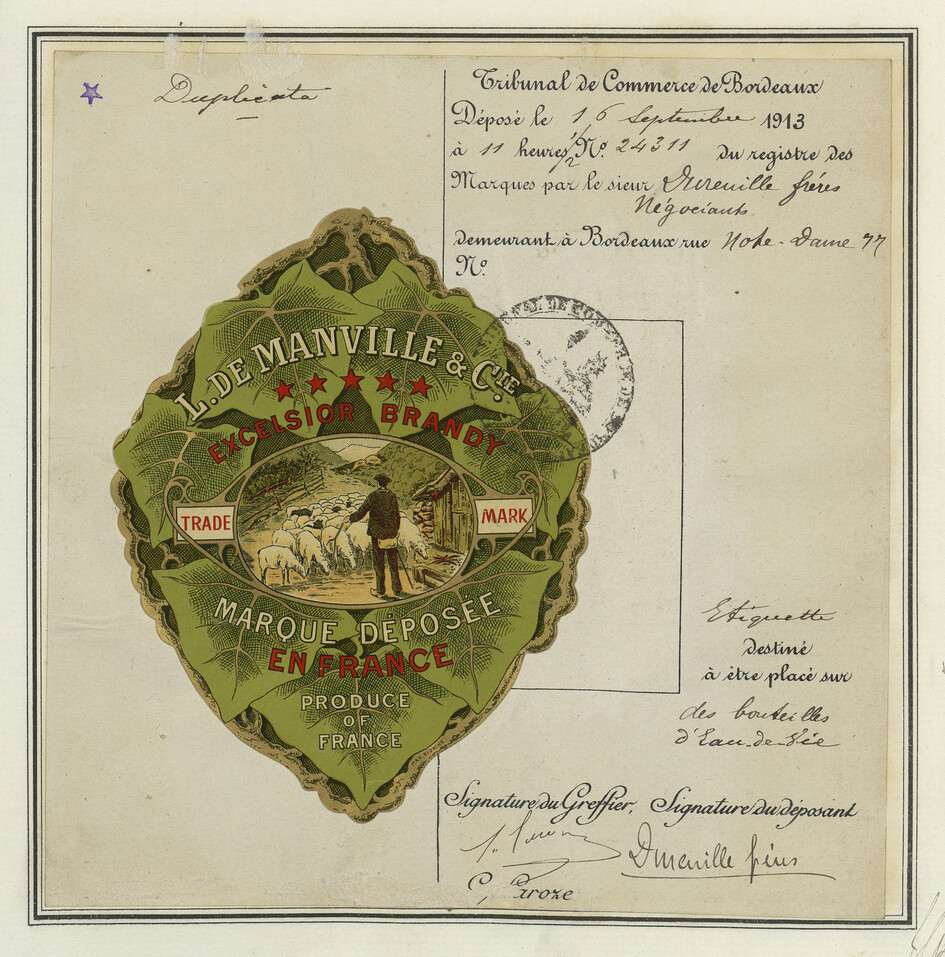 Duplicata
Tribunal de Commerce de Bordeaux
Déposé le 16 Septembre 1913
à 11 heures 1/2 No. 24311 du registre des
Marques par le sieur Dureville frères
Négociants
demeurant à Bordeaux rue Notre-Dame 77
No.
L. DE MANVILLE & CIE.
EXCELSIOR BRANDY
TRADE MARK
MARQUE DÉPOSÉE
EN FRANCE
PRODUCE
OF
FRANCE
Etiquette
destiné
à être placé sur
des bouteilles
d'Eau-de-Vie
Signature du Greffier, Signature du déposant
Dureville frères